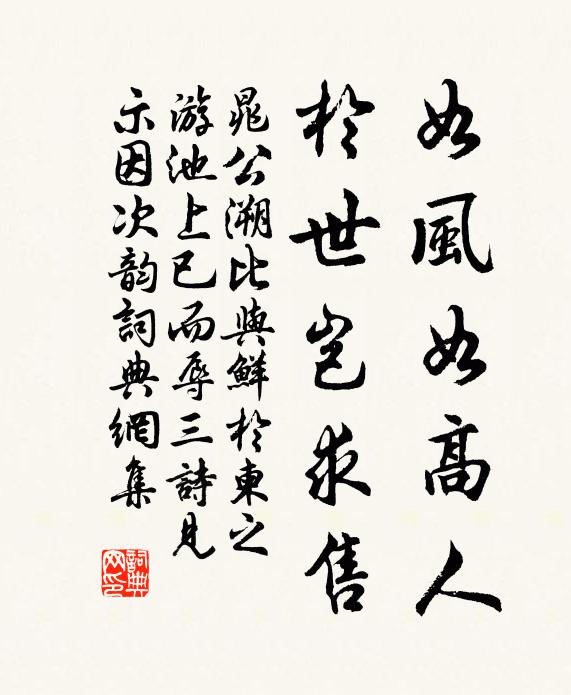 如風如高人
於世豈求售
晁公溯比與鮮於東之
游池上已而辱三詩見
示因次韵詞典網集
詞典网印